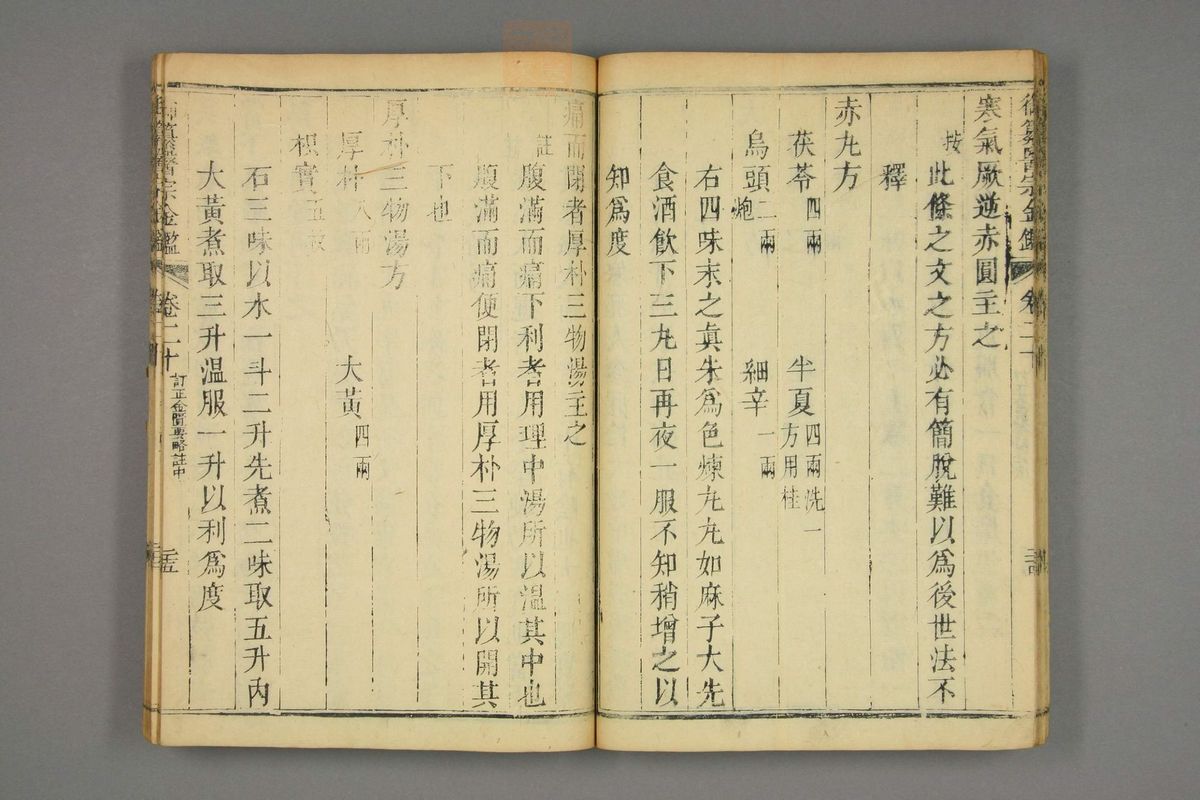 御纂醫宗金鑑 卷二十
寒氣厥逆赤圓主之
按 此條之文之方必有簡脫難以爲後世法不
釋
赤丸方
茯苓四兩 半夏四兩洗一方用桂
烏頭二兩炮 細辛一兩
右四味末之真朱爲色煉丸丸如麻子大先
食酒飲下三丸日再夜一服不知稍增之以
知爲度
痛而閉者厚朴三物湯主之
註 腹滿而痛下利者用理中湯所以溫其中也
腹滿而痛便閉者用厚朴三物湯所以開其
下也
厚朴三物湯方
厚朴八兩 大黃四兩
枳實五枚
右三味以水一斗二升先煮二味取五升內
大黃煮取三升溫服一升以利爲度
御纂醫宗金鑑 卷二十 訂正金匱要略註中 二五